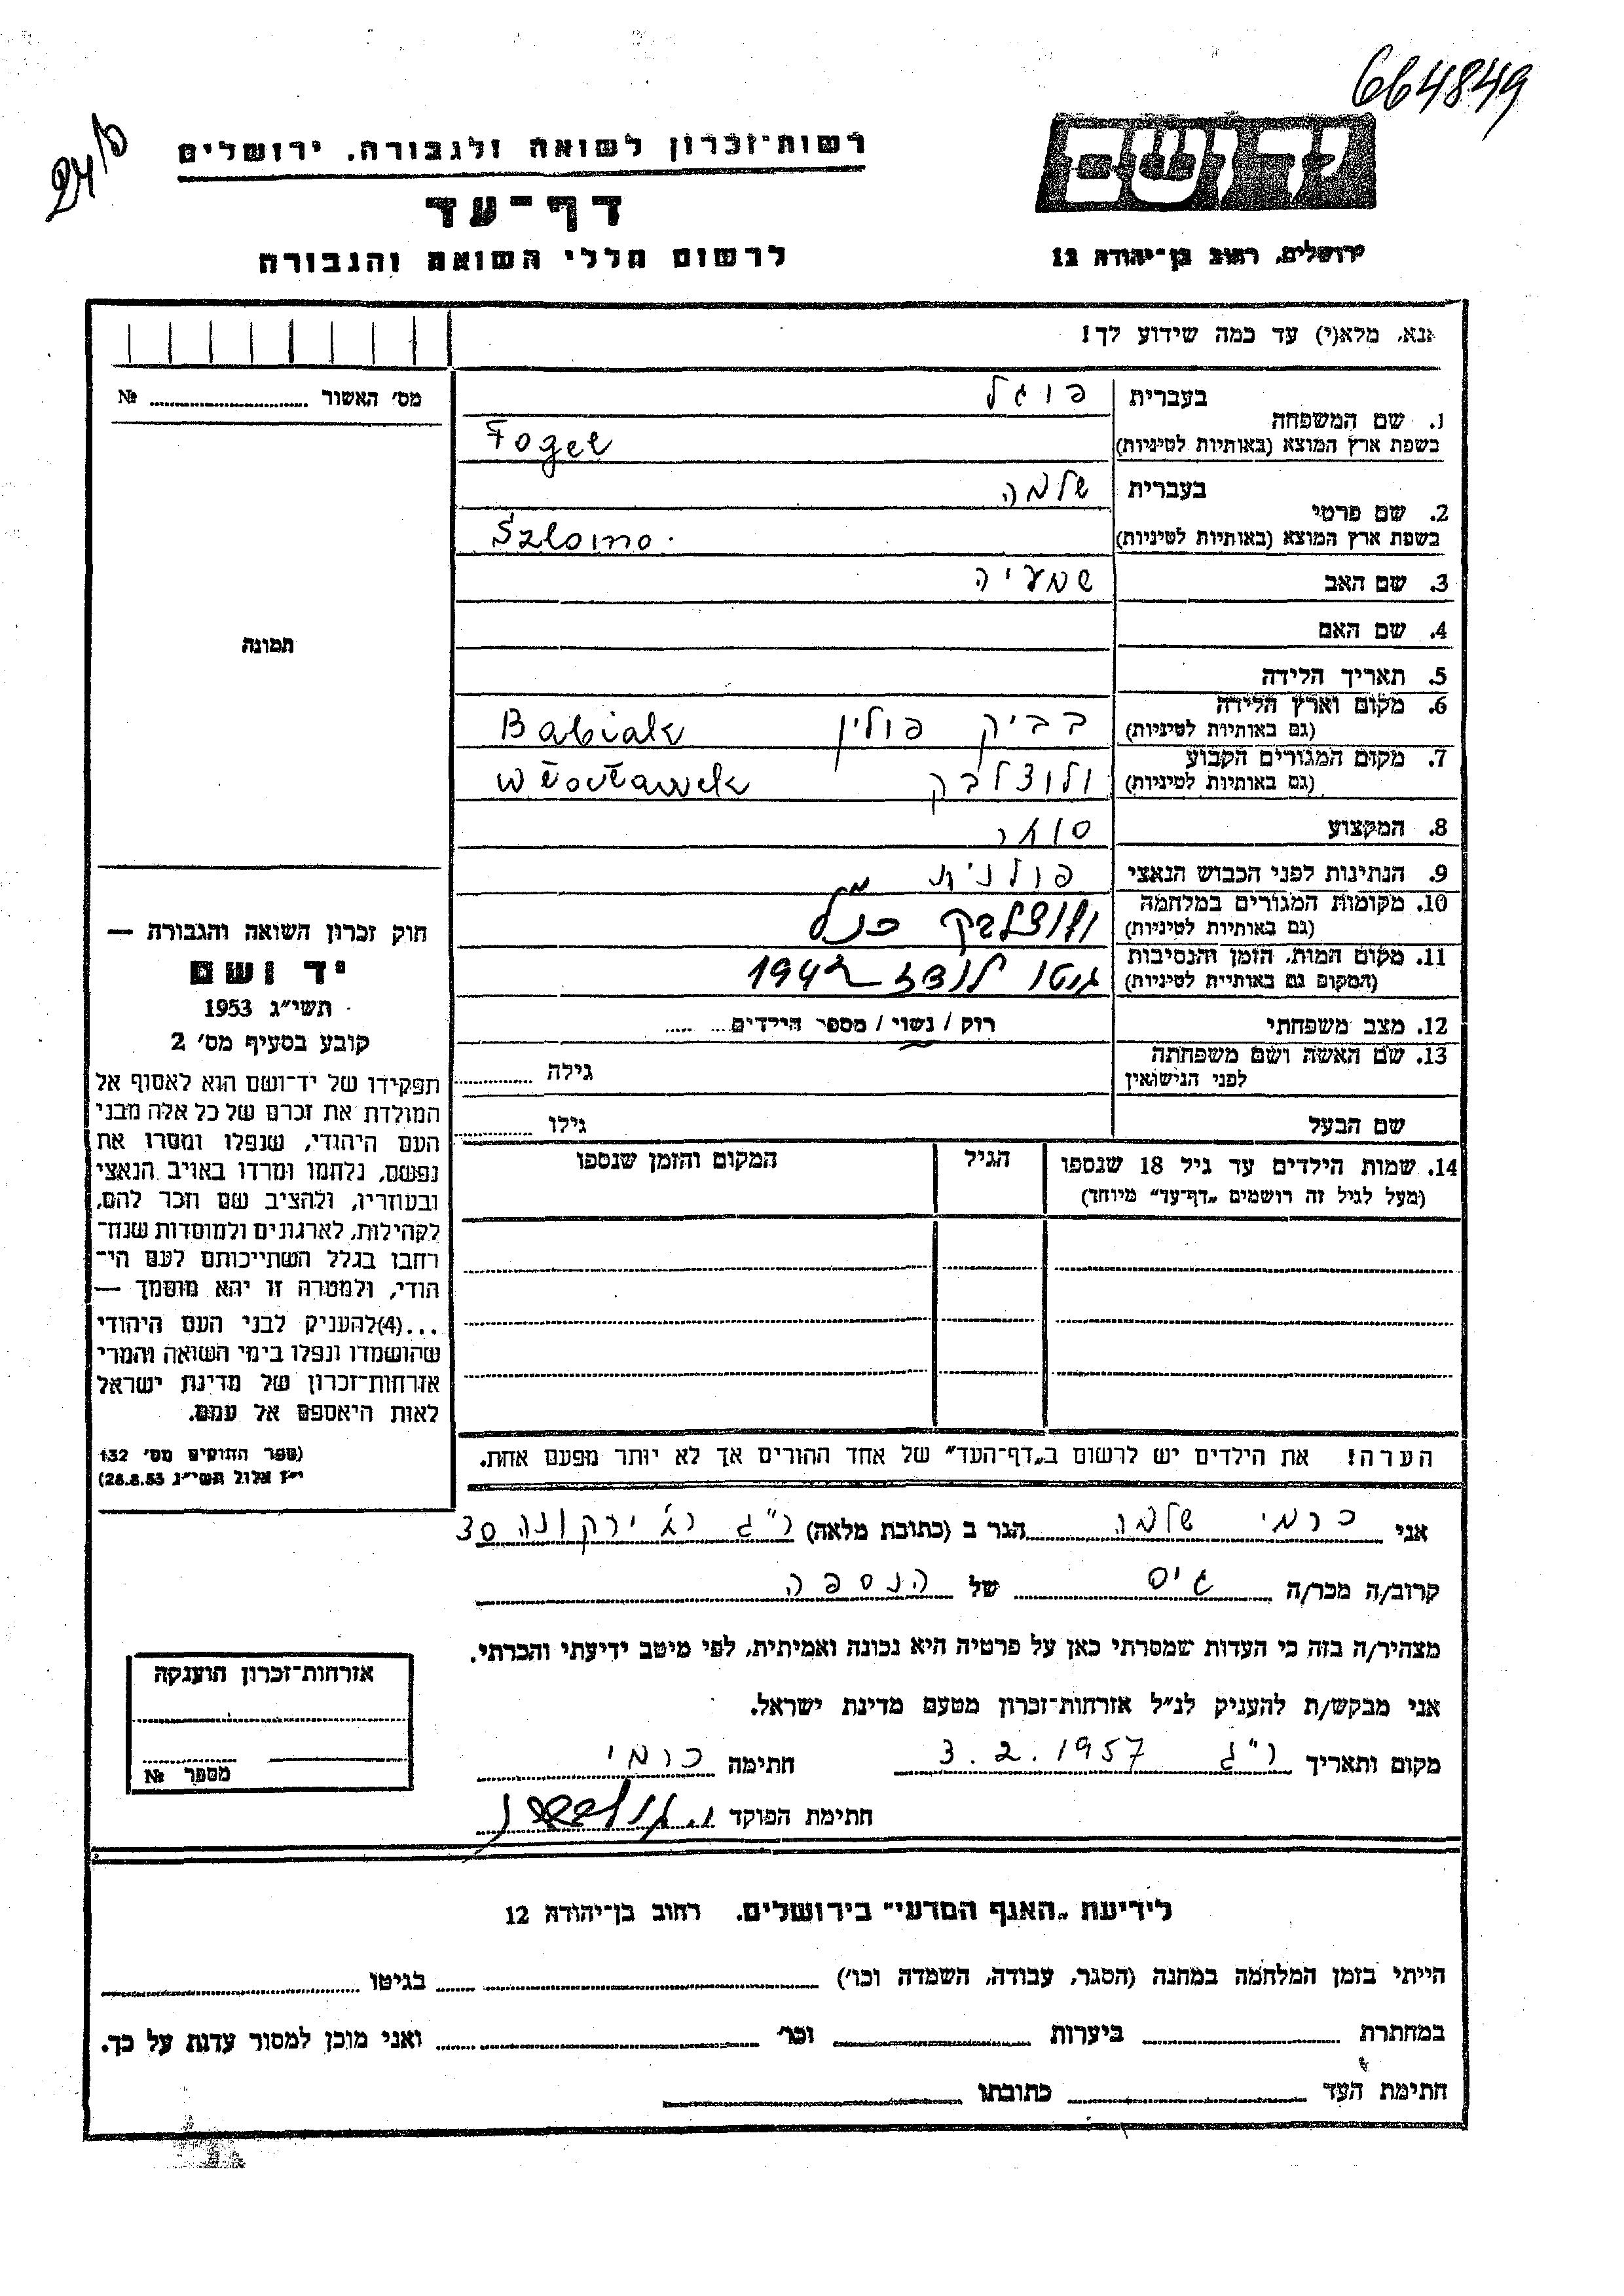 664849
24/5
רשות־זכרון לשואה ולגבורה, ירושלים
יד ושם
דף־עד
לרשום חללי השואה והגבורה
ירושלים, רחוב בן־יהודה 12
אנא, מלא(י) עד כמה שידוע לך!
מס׳ האשור № 
1. שם המשפחה בעברית פוגל
בשפת ארץ המוצא (באותיות לטיניות) Fogel
2. שם פרטי בעברית שלמה
בשפת ארץ המוצא (באותיות לטיניות) Szlomo
3. שם האב שמעיה
4. שם האם
5. תאריך הלידה
6. מקום וארץ הלידה (גם באותיות לטיניות) בביק פולין Babiak
7. מקום המגורים הקבוע (גם באותיות לטיניות) ולוצלבק Włocławek
8. המקצוע סוחר
9. הנתינות לפני הכבוש הנאצי פולנית
10. מקומות המגורים במלחמה (גם באותיות לטיניות) ולוצלבק כנ״ל
11. מקום המות, הזמן והנסיבות (המקום גם באותיות לטיניות) גיטו לודז 1942
12. מצב משפחתי רוק / נשוי / מספר הילדים
13. שם האשה ושם משפחתה לפני הנישואין גילה
שם הבעל גילו
14. שמות הילדים עד גיל 18 שנספו הגיל המקום והזמן שנספו
(מעל לגיל זה רושמים „דף־עד״ מיוחד)
תמונה
חוק זכרון השואה והגבורה —
יד ושם
תשי״ג 1953
קובע בסעיף מס׳ 2
תפקידו של יד־ושם הוא לאסוף אל
המולדת את זכרם של כל אלה מבני
העם היהודי, שנפלו ומסרו את
נפשם, נלחמו ומרדו באויב הנאצי
ובעוזריו, ולהציב שם וזכר להם,
לקהילות, לארגונים ולמוסדות שנח־
רחבו בגלל השתייכותם לעם הי־
הודי, ולמטרה זו יהא מוסמך —
...(4)להעניק לבני העם היהודי
שהושמדו ונפלו בימי השואה והמרי
אזרחות־זכרון של מדינת ישראל
לאות היאספם אל עמם.
(ספר החוקים מס׳ 132
י״ז אלול תשי״ג 28.8.53)
הערה! את הילדים יש לרשום ב„דף־העד״ של אחד ההורים אך לא יותר מפעם אחת.
אני כרמי שלמה הגר ב (כתובת מלאה) ר״ג רח׳ ירקונה 30
קרוב/ה מכר/ה גיס של הנספה
מצהיר/ה בזה כי העדות שמסרתי כאן על פרטיה היא נכונה ואמיתית, לפי מיטב ידיעתי והכרתי.
אני מבקש/ת להעניק לנ״ל אזרחות־זכרון מטעם מדינת ישראל.
מקום ותאריך ר״ג 3.2.1957 חתימה כרמי
חתימת הפוקד
אזרחות־זכרון הוענקה
מספר №
לידיעת „האגף המדעי״ בירושלים, רחוב בן־יהודה 12
הייתי בזמן המלחמה במחנה (הסגר, עבודה, השמדה וכו׳) בגיטו
במחתרת ביערות וכו׳ ואני מוכן למסור עדות על כך.
חתימת העד כתובתו